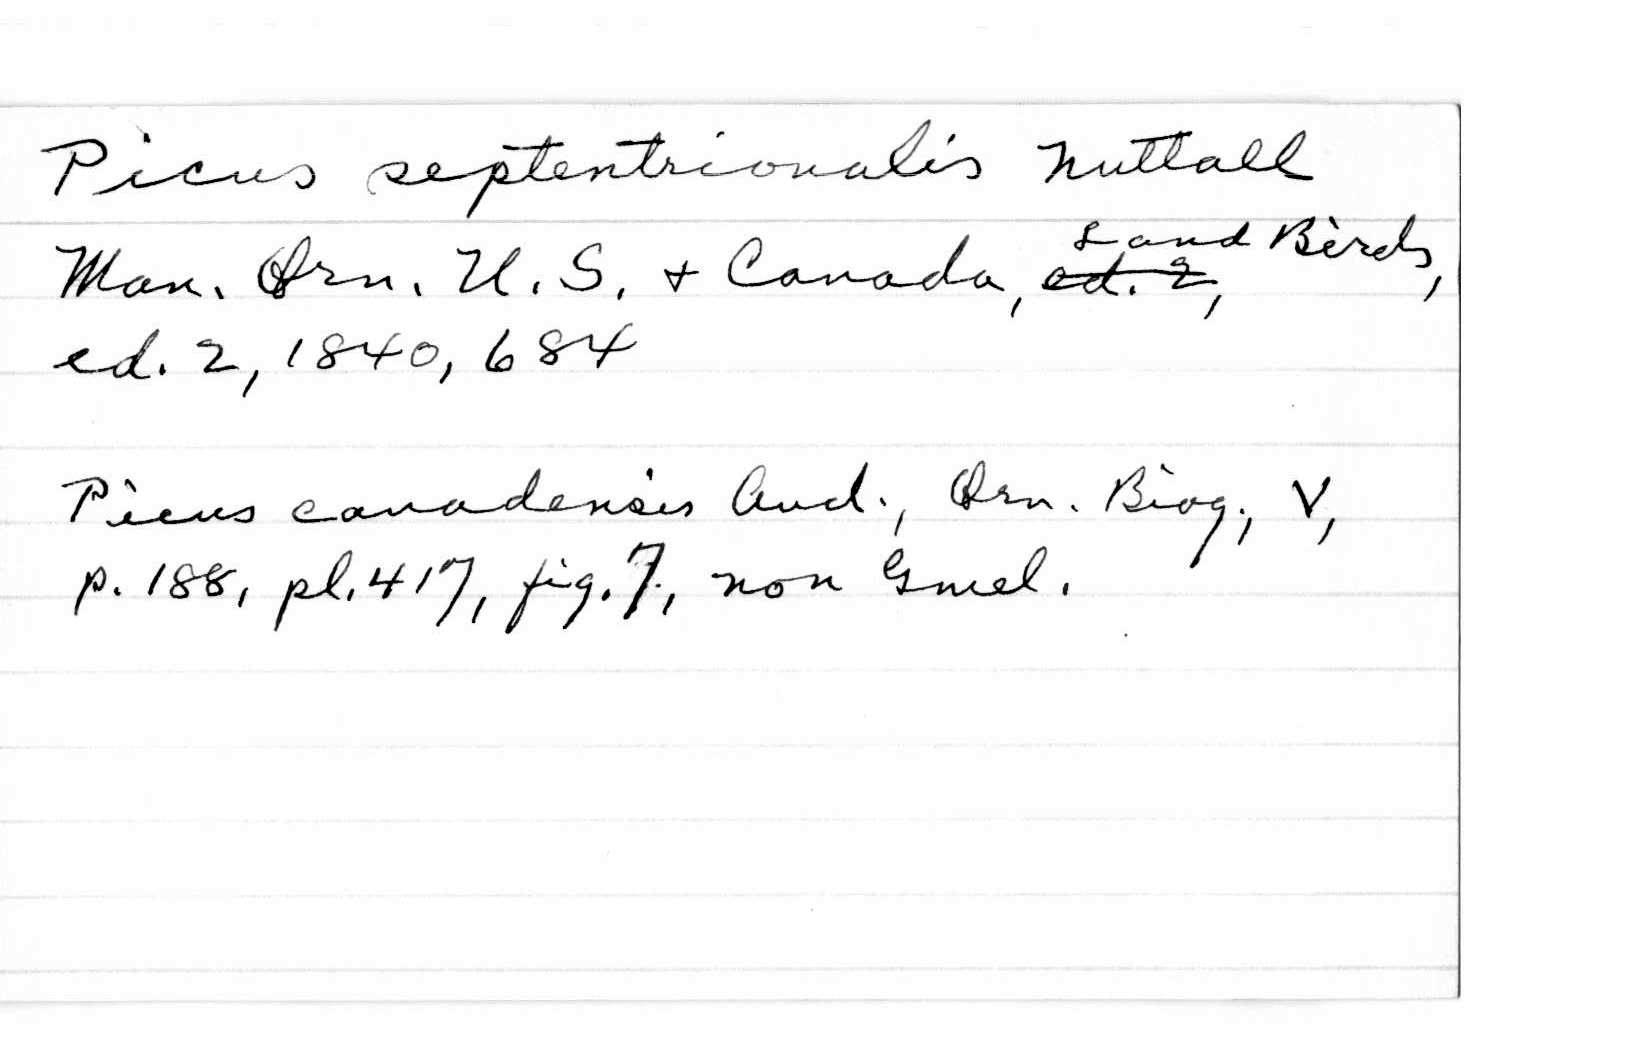 Picus septentrionalis Nuttall
Man. Orn. U.S. + Canada, ed. 2, Land Birds,
ed. 2, 1840, 684
Picus canadensis Aud., Orn. Biog., V,
p. 188, pl. 417, fig. 7, non Gmel.